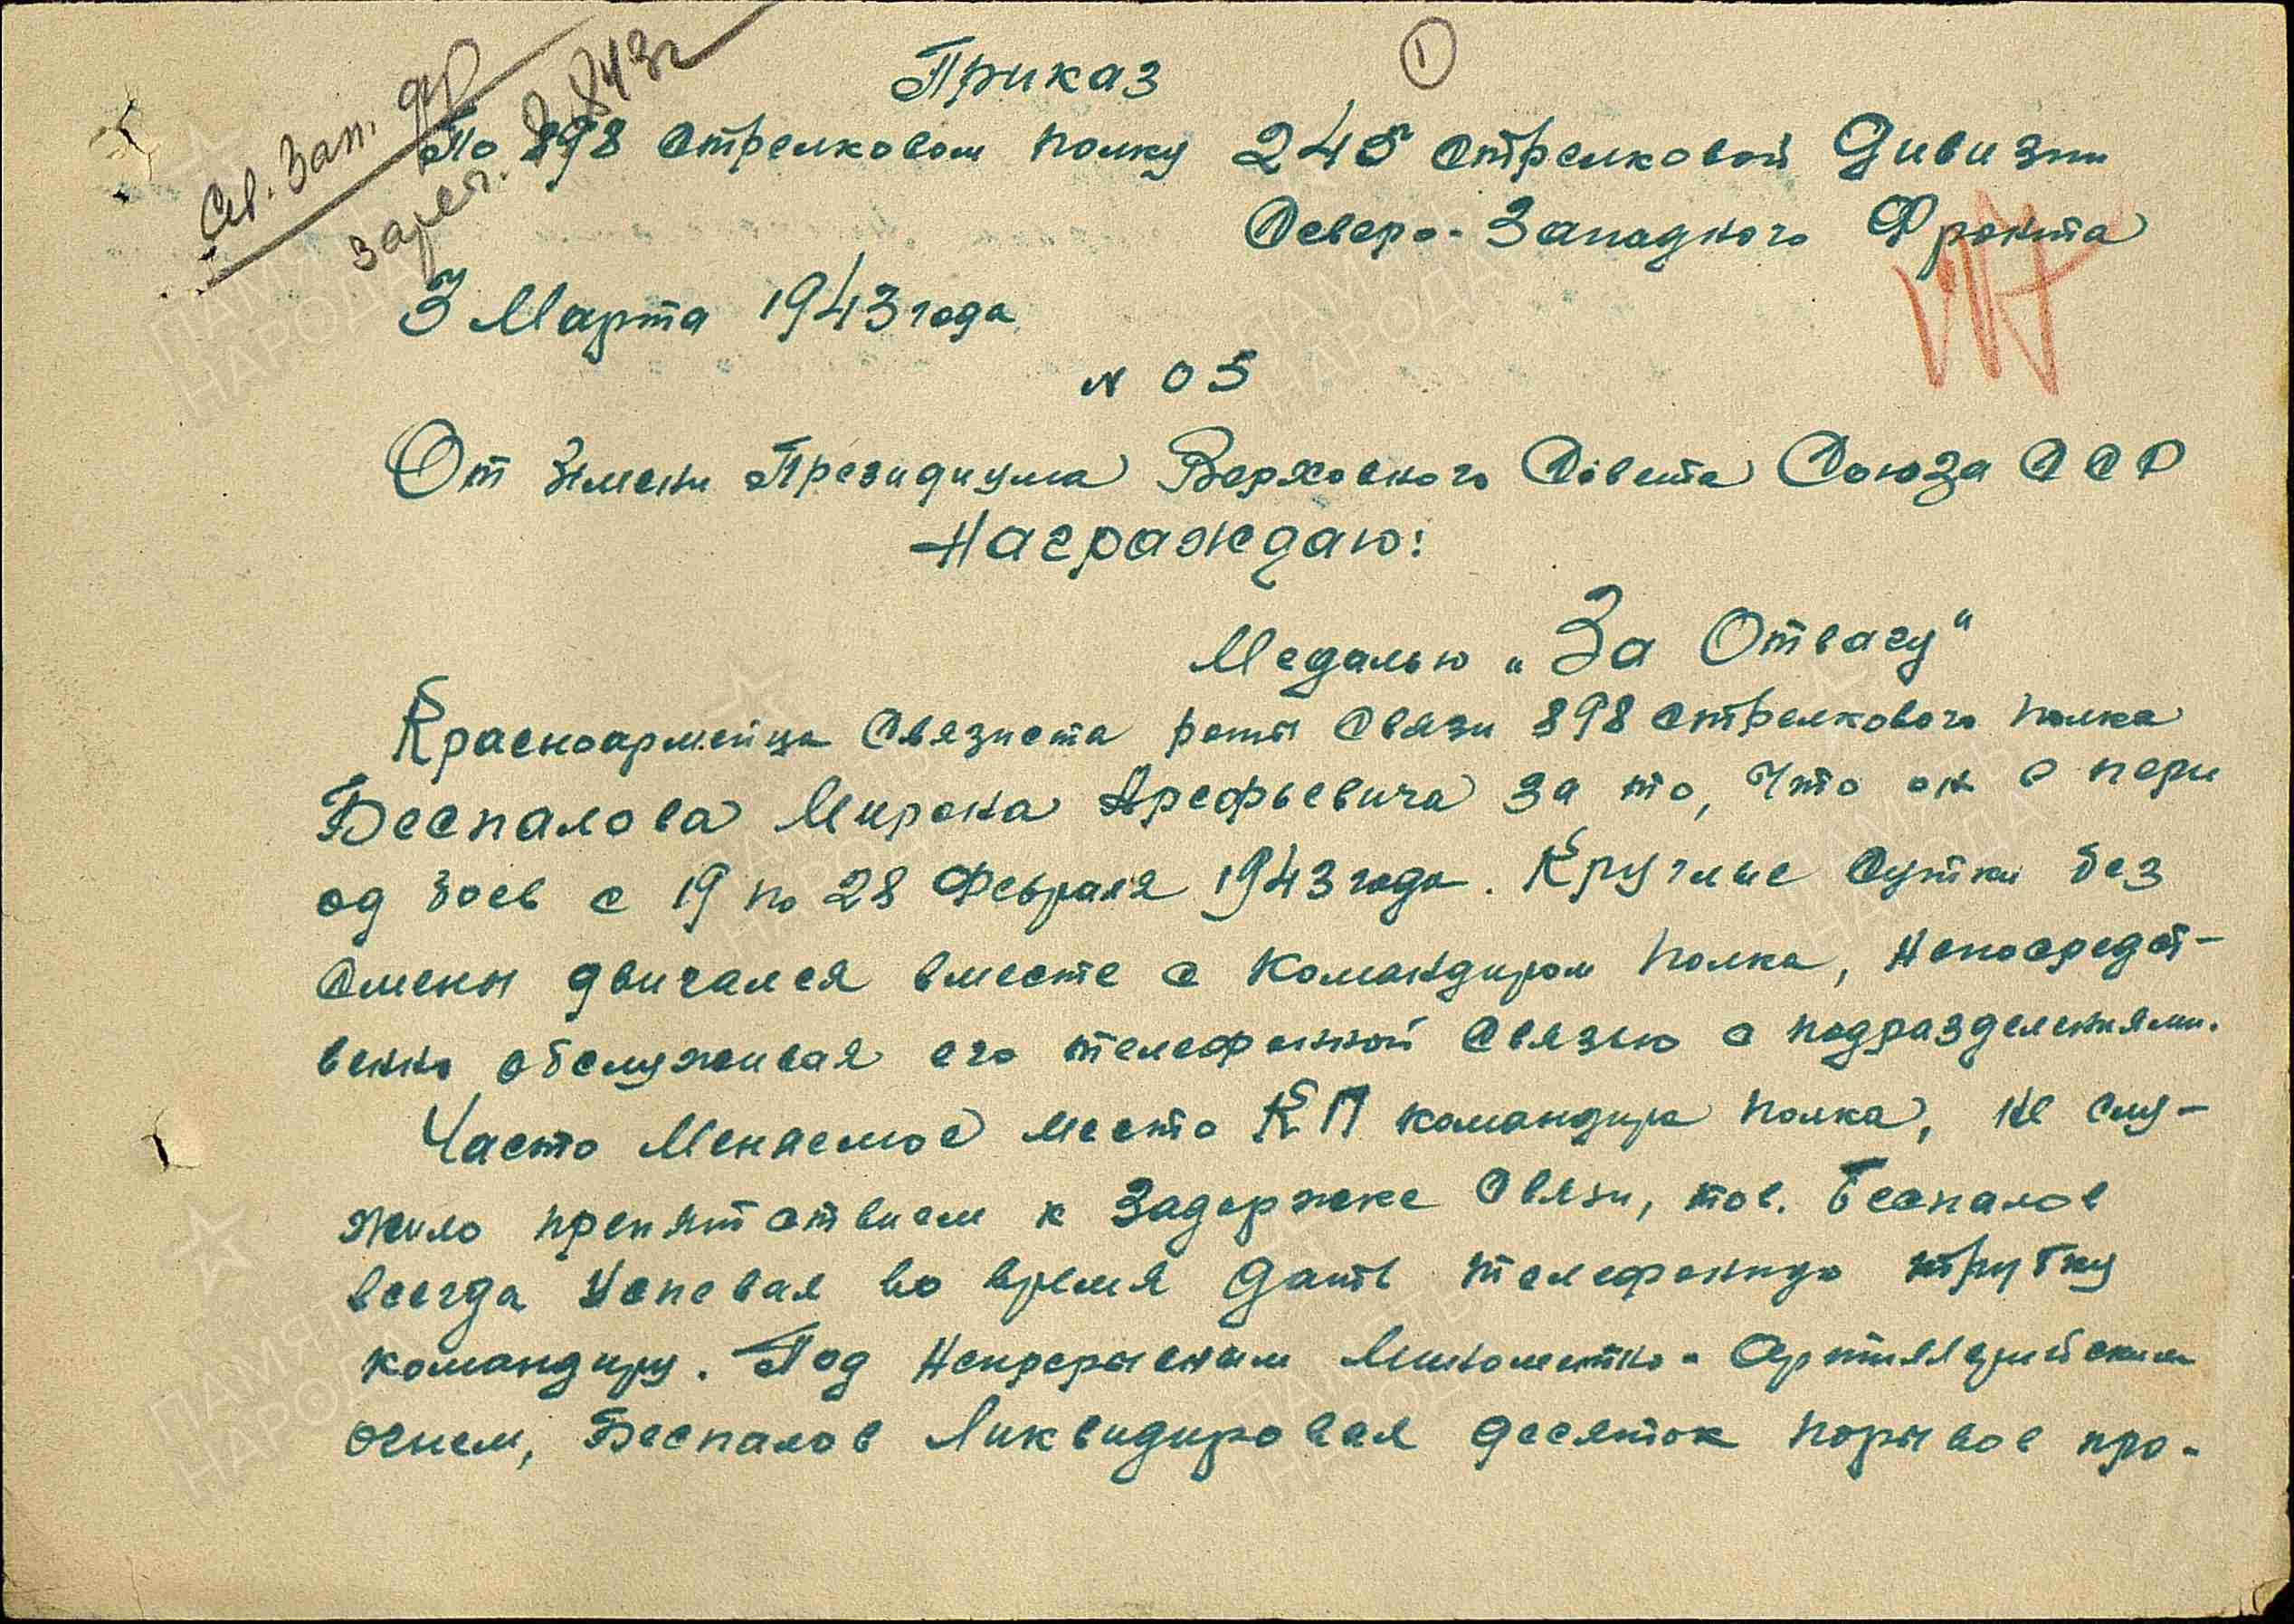 Приказ
①
Св. Зап. фр
Зарег. 9.8.43г
По 898 Стрелковом полку 245 Стрелковой Дивизии
Северо-Западного Фронта
3 Марта 1943 года
N 05
От Имени Президиума Верховного Совета Союза ССР
Награждаю:
Медалью „За Отвагу"
Красноармейца Связиста роты Связи 898 Стрелкового полка
Беспалова Мирона Арефьевича за то, Что он в пери
од боев с 19 по 28 Февраля 1943 года. Круглые Сутки без
Смены двигался вместе с Командиром полка, Непосредст-
венно обслуживая его телефонной Связью с подразделениями.
Часто Меняемое место КП командира полка, не слу-
жило препятствием к Задержке Связи, тов. Беспалов
всегда Успевал во время Дать телефонную трубку
командиру. Под Непрерывным Минометно-Артиллерийским
огнем, Беспалов Ликвидировал десяток порывов про-
ПАМЯТЬ
НАРОДА